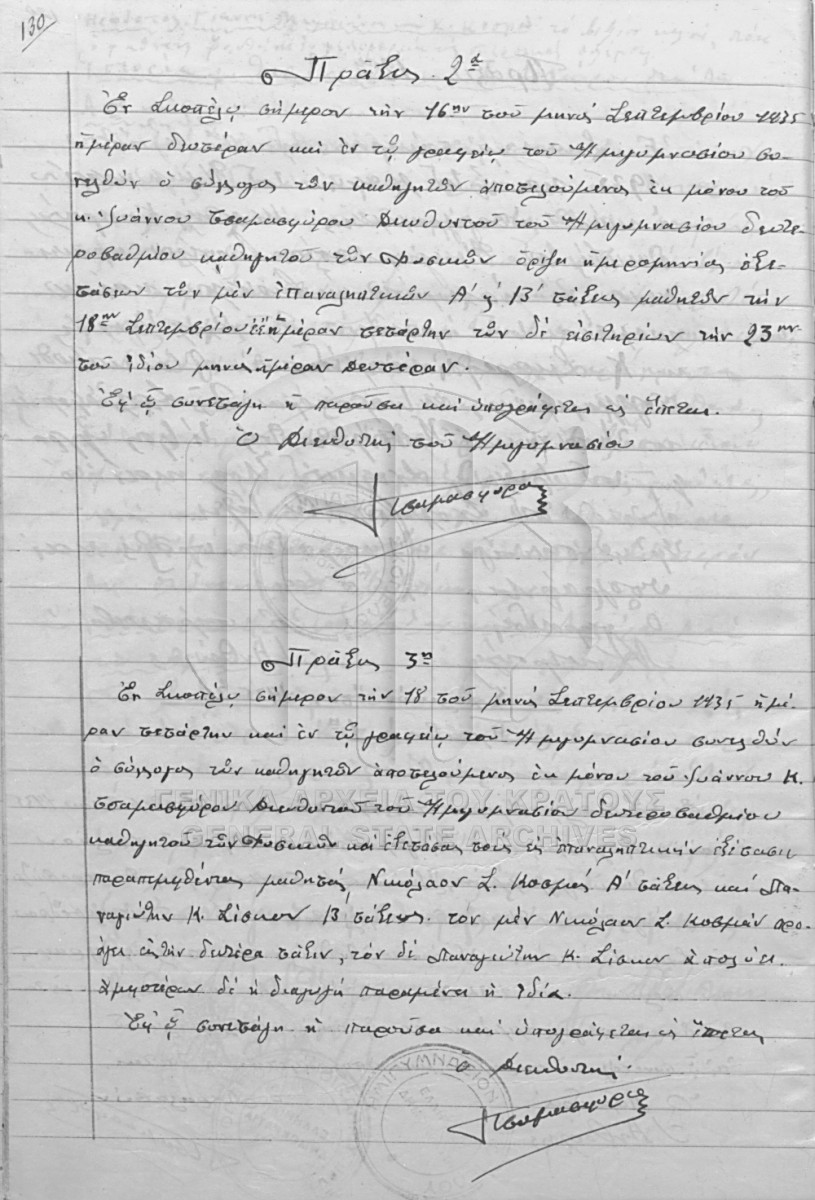 130
Πρᾶξις 2α
Ἐν Σκοπέλῳ σήμερον τὴν 16ην τοῦ μηνός Σεπτεμβρίου 1935
ἡμέραν Δευτέραν καὶ ἐν τῷ γραφείῳ τοῦ Ἡμιγυμνασίου συ-
νελθών ὁ σύλλογος τῶν καθηγητῶν ἀποτελούμενος ἐκ μόνου τοῦ
κ. Ἰωάννου Τσαμασφύρου Διευθυντοῦ τοῦ Ἡμιγυμνασίου δευτε-
ροβαθμίου καθηγητοῦ τῶν Φυσικῶν ὁρίζει ἡμερομηνίας ἐξε-
τάσεων τῶν μὲν ἐπαναληπτικῶν Α' & Β' τάξεως μαθητῶν τὴν
18ην Σεπτεμβρίου ἡμέραν τετάρτην τῶν δὲ εἰσιτηρίων τὴν 23ην
τοῦ ἰδίου μηνός ἡμέραν Δευτέραν.
Ἐφ' ᾧ συνετάγη ἡ παροῦσα καὶ ὑπογράφεται ὡς ἕπεται.
Ὁ Διευθυντής τοῦ Ἡμιγυμνασίου
Τσαμασφύρο
Πρᾶξις 3η
Ἐν Σκοπέλῳ σήμερον τὴν 18 τοῦ μηνός Σεπτεμβρίου 1935 ἡμέ-
ραν τετάρτην καὶ ἐν τῷ γραφείῳ τοῦ Ἡμιγυμνασίου συνελθών
ὁ σύλλογος τῶν καθηγητῶν ἀποτελούμενος ἐκ μόνου τοῦ Ἰωάννου Κ.
Τσαμασφύρου Διευθυντοῦ τοῦ Ἡμιγυμνασίου δευτεροβαθμίου
καθηγητοῦ τῶν Φυσικῶν καὶ ἐξετάσας τους εἰς ἐπαναληπτικήν ἐξέτασιν
παραπεμφθέντας μαθητάς Νικόλαον Σ. Κοσμᾶν Α' τάξεως καὶ Πα-
ναγιώτην Κ. Σίσκον Β' τάξεως. τὸν μὲν Νικόλαον Σ. Κοσμᾶν προ-
άγει εἰς τὴν δευτέρα τάξιν, τὸν δὲ Παναγιώτην Κ. Σίσκον ἀπολύει.
Ἀμφοτέρων δὲ ἡ διαγωγή παραμένει ἡ ἰδία.
Ἐφ' ᾧ συνετάγη ἡ παροῦσα καὶ ὑπογράφεται ὡς ἕπεται
Ὁ Διευθυντής.
Τσαμασφύρο
ΓΕΝΙΚΑ ΑΡΧΕΙΑ ΤΟΥ ΚΡΑΤΟΥΣ
GENERAL STATE ARCHIVES